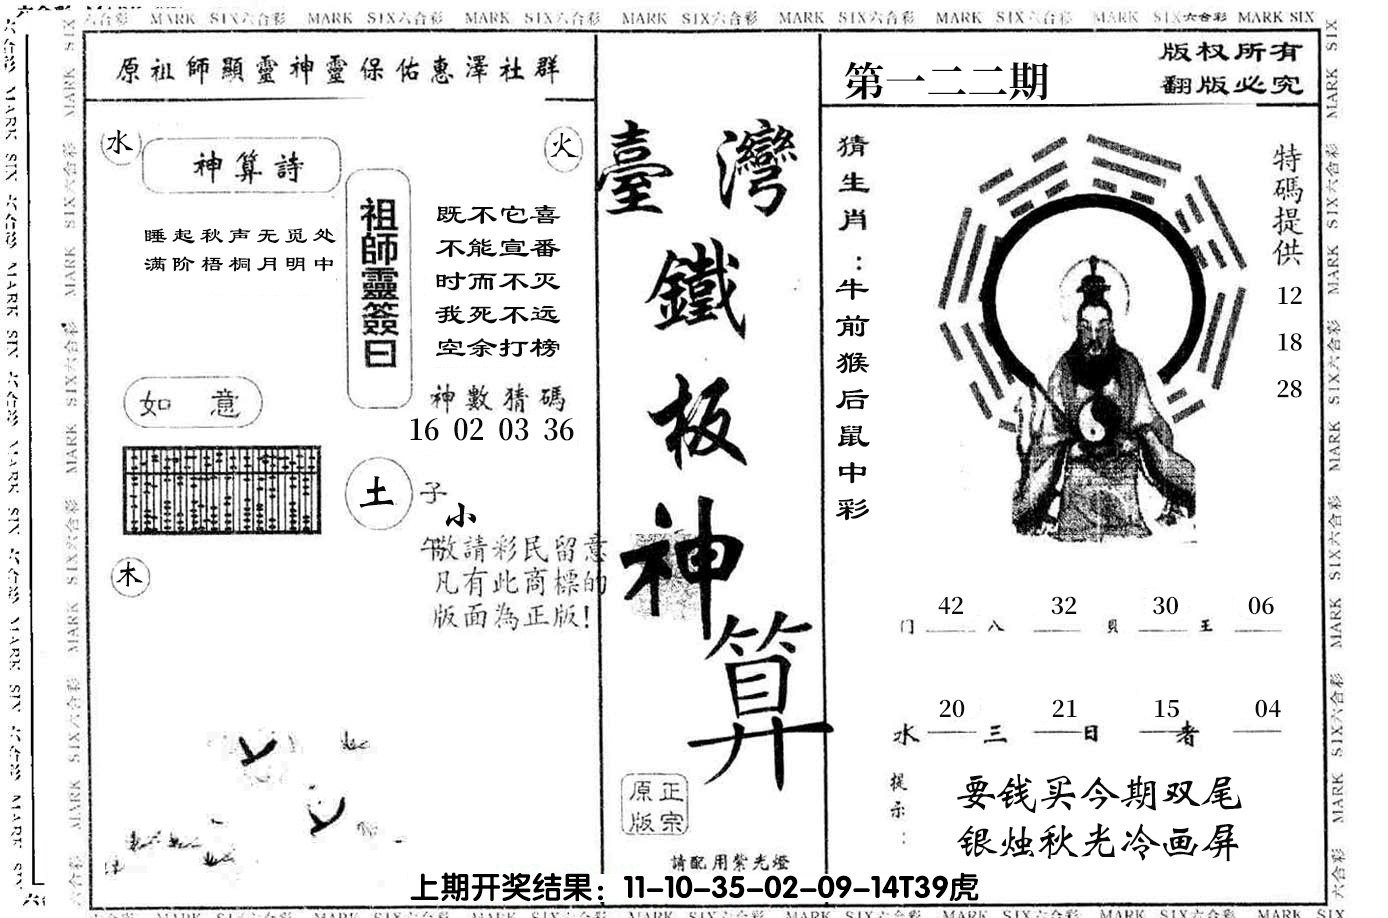 六合彩 MARK SIX六合彩 MARK SIX六合彩 MARK SIX六合彩 MARK SIX六合彩 MARK SIX六合彩 MARK SIX六合彩 MARK SIX六合彩 MARK SIX
原祖師顯靈神靈保佑惠澤社群
水
火
神算詩
睡起秋声无觅处
满阶梧桐月明中
祖師靈簽曰
既不它喜
不能宣番
时而不灭
我死不远
空余打榜
神數猜碼
16 02 03 36
如意
土
子
小
午
木
敬請彩民留意
凡有此商標的
版面為正版!
臺灣
鐵
板
神
算
正宗
原版
請配用紫光燈
第一二二期
版权所有
翻版必究
猜生肖:牛前猴后鼠中彩
特碼提供
12
18
28
42 32 30 06
门 八 貝 王
20 21 15 04
水 三 日 者
提示:
要钱买今期双尾
银烛秋光冷画屏
上期开奖结果：11-10-35-02-09-14T39虎